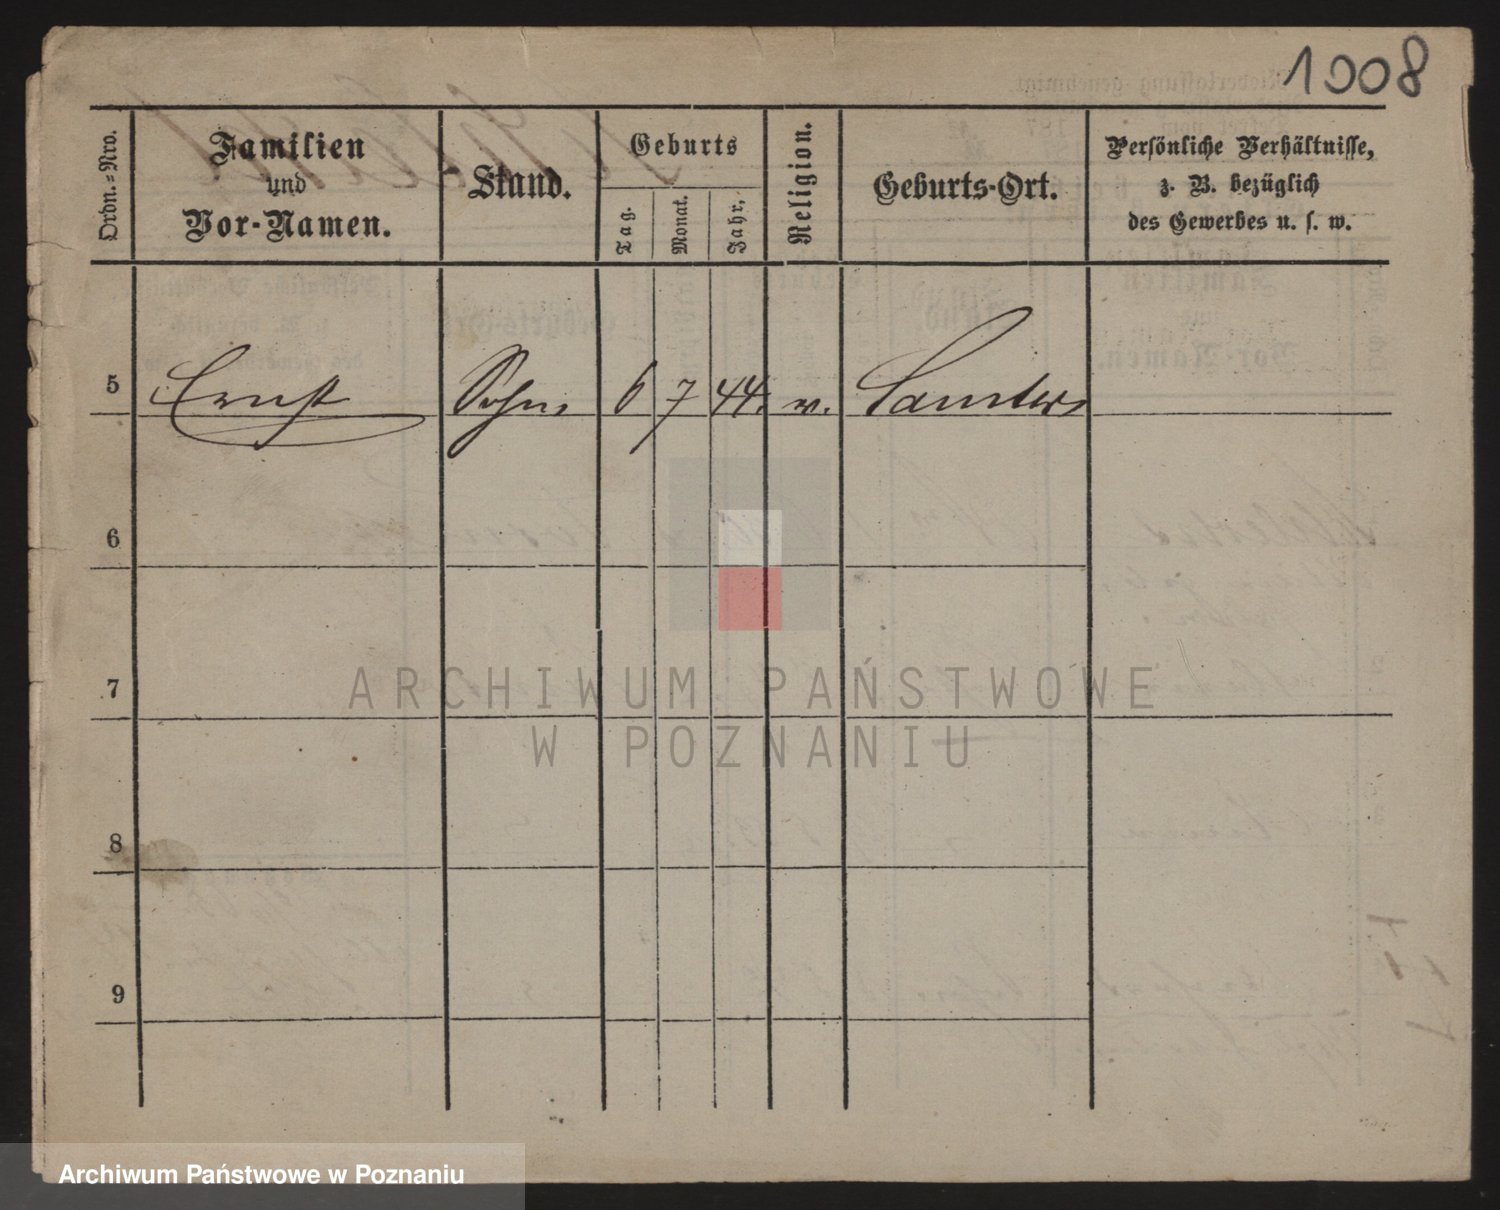 1008
Ordn.-Nro.
Familien
und
Vor-Namen.
Stand.
Geburts
Tag.
Monat.
Jahr.
Religion.
Geburts-Ort.
Persönliche Verhältnisse,
z. B. bezüglich
des Gewerbes u. s. w.
5 Ernst Sohn 6 7 44. v. Samter
6
7
8
9
ARCHIWUM PAŃSTWOWE
W POZNANIU
Archiwum Państwowe w Poznaniu